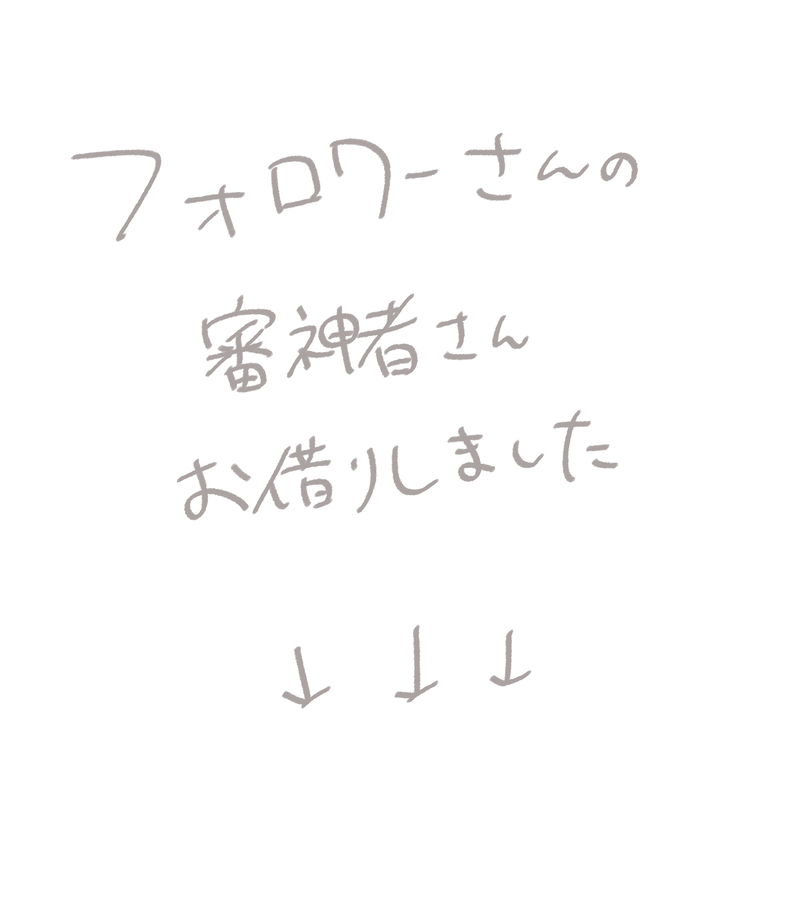 フォロワーさんの
審神者さん
お借りしました
↓ ↓ ↓